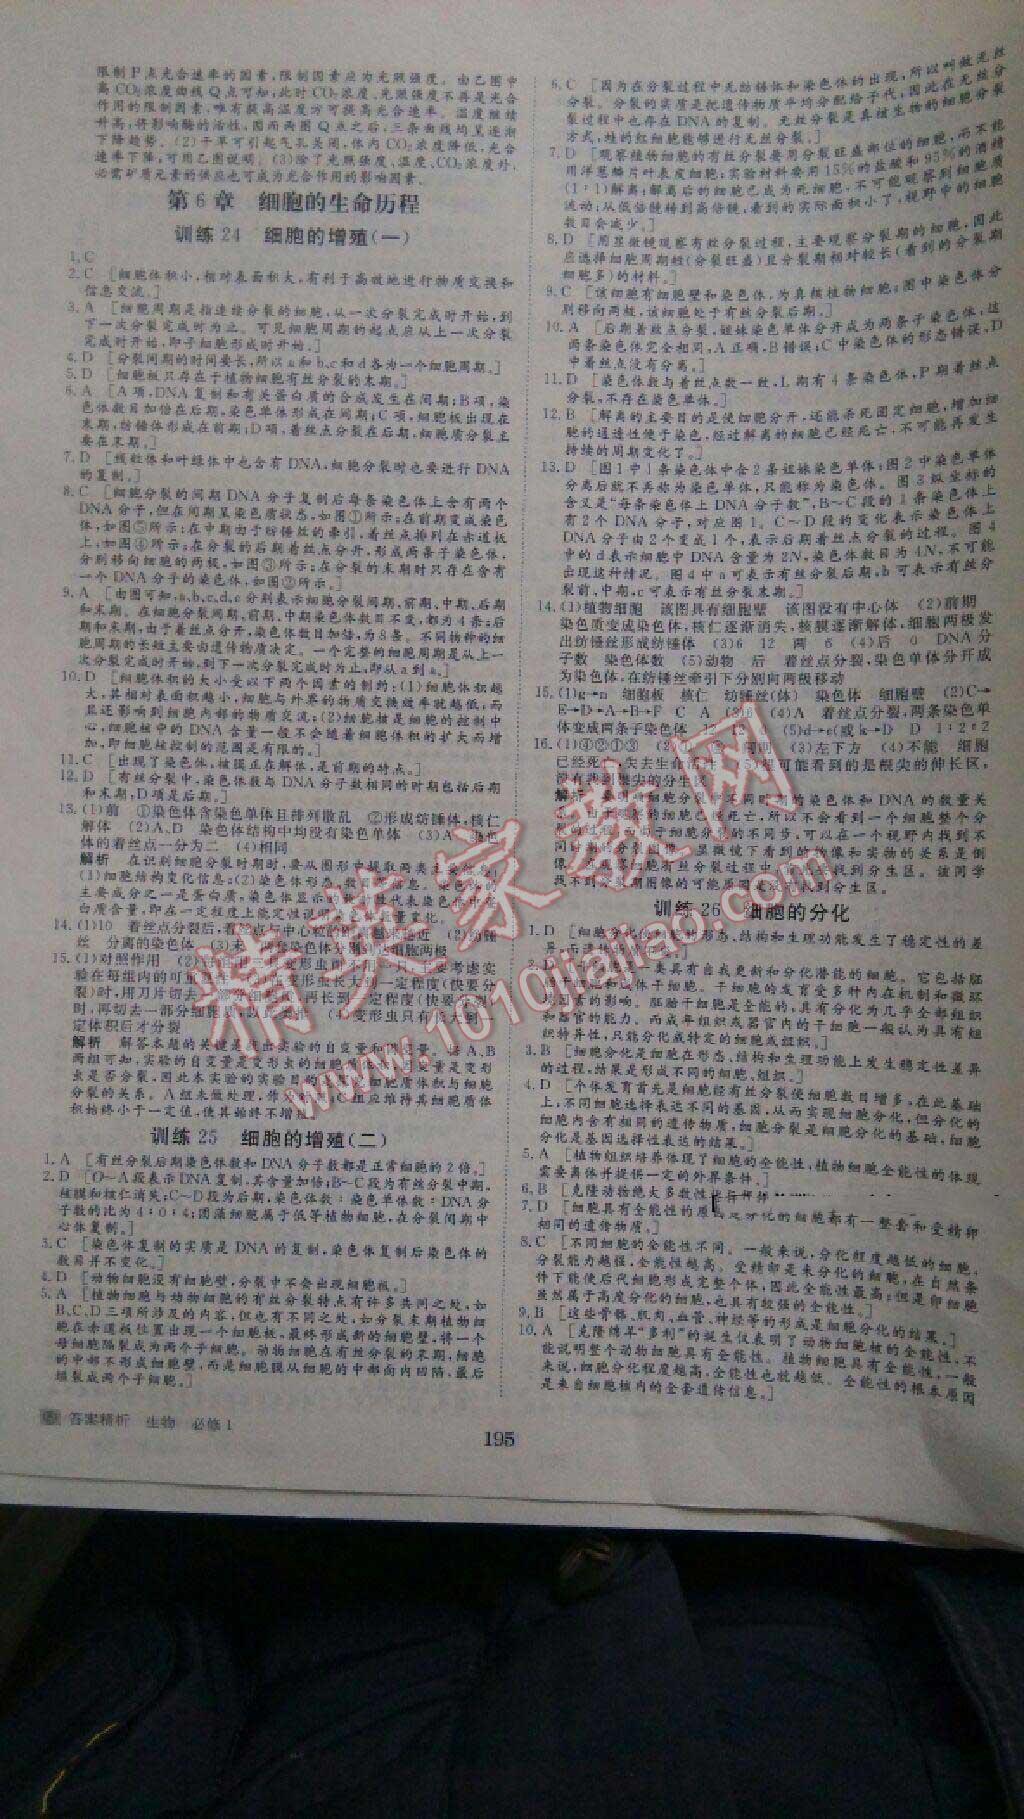 限制P点光合速率的因素,限制因素应为光照强度。由乙图中
高CO₂浓度曲线Q点可知,此时CO₂浓度、光照强度不再是光合
作用的限制因素,唯有提高温度方可提高光合速率。温度继续
升高,将影响酶的活性,因而两图Q点之后,三条曲线均呈逐渐
下降趋势。(2)干旱可引起气孔关闭,体内CO₂浓度降低,光合
速率下降,可用乙图说明。(3)除了光照强度、温度、CO₂浓度外,
必需矿质元素的供应也可成为光合作用的影响因素。
第6章 细胞的生命历程
训练24 细胞的增殖(一)
1.C
2.C [细胞体积小,相对表面积大,有利于高效地进行物质交换和
信息交流。]
3.A [细胞周期是指连续分裂的细胞,从一次分裂完成时开始,到
下一次分裂完成时为止。可见细胞周期的起点应从上一次分裂
完成时开始,即子细胞形成时开始。]
4.D [分裂间期的时间要长,所以a和b、c和d各为一个细胞周期。]
5.D [细胞板只存在于植物细胞有丝分裂的末期。]
6.A [A项,DNA复制和有关蛋白质的合成发生在间期;B项,染
色体数目加倍在后期,染色单体形成在间期;C项,细胞板出现在
末期,纺锤体形成在前期;D项,着丝点分裂在后期,细胞质分裂主
要在末期。]
7.D [线粒体和叶绿体中也含有DNA,细胞分裂时也要进行DNA
的复制。]
8.C [细胞分裂的间期DNA分子复制后每条染色体上含有两个
DNA分子,但在间期呈染色质状态,如图①所示;在前期变成染色
体,如图⑤所示;在中期由于纺锤丝的牵引,着丝点排列在赤道板
上,如图④所示;在分裂的后期着丝点分开,形成两条子染色体,
分别移向细胞的两极,如图③所示;在分裂的末期时只存在含有
一个DNA分子的染色体,如图②所示。]
9.A [由图可知,a、b、c、d、e分别表示细胞分裂间期、前期、中期、后期
和末期。在细胞分裂间期、前期、中期染色体数目不变,都为4条;后
期和末期,由于着丝点分开,染色体数目加倍,为8条。不同物种的细
胞周期的长短主要由遗传物质决定。一个完整的细胞周期是从上一
次分裂完成时开始,到下一次分裂完成时为止,即从a到a。]
10.D [细胞体积的大小受以下两个因素的制约:(1)细胞体积越
大,其相对表面积越小,细胞与外界的物质交换效率就越低,而
且还影响到细胞内部的物质交流;(2)细胞核是细胞的控制中
心,细胞核中的DNA含量一般不会随着细胞体积的扩大而增
加,即细胞核控制的范围是有限的。]
11.C [出现了染色体,核膜正在解体,是前期的特点。]
12.D [有丝分裂中,染色体数与DNA分子数相同的时期包括后期
和末期,D项是后期。]
13.(1)前 ①染色体含染色单体且排列散乱 ②形成纺锤体,核仁
解体 (2)A、D 染色体结构中均没有染色单体 (3)A 染色
体的着丝点一分为二 (4)相同
解析 在识别细胞分裂时期时,要从图形中提取两类主要信息:
(1)细胞结构变化信息;(2)染色体形态、数目等信息。染色体的
主要成分之一是蛋白质,染色体显示的
白质含量,即在一定程度上能定性说明
14.(1)10 着丝点分裂后,着丝点与中心粒的距离越来越近 (2)纺锤
丝 分离的染色体 (3)未 两组染色体分别到达细胞两极
15.(1)对照作用
定体积后才分裂
解析 解答本题的关键是找出实验的自变量和因变量。将A、B
两组可知,实验的自变量是变形虫的细胞质体积,因变量是变形
虫是否分裂,因此本实验的实验目的是探究细胞质体积与细胞
分裂的关系。A组未做处理,作为对照组,B组应维持其细胞质体
积始终小于一定值,使其始终不增殖。
训练25 细胞的增殖(二)
1.A [有丝分裂后期染色体数和DNA分子数都是正常细胞的2倍。]
2.D [O~A段表示DNA复制,其含量加倍;B~C段为有丝分裂中期,
核膜和核仁消失;C~D段为后期,染色体数∶染色单体数∶DNA分
子数的比为4∶0∶4;团藻细胞属于低等植物细胞,在分裂间期中
心体复制。]
3.C [染色体复制的实质是DNA的复制,染色体复制后染色体的
数目并不变化。]
4.D [动物细胞没有细胞壁,分裂中不会出现细胞板。]
5.A [植物细胞与动物细胞的有丝分裂特点有许多共同之处,如
B、C、D三项所涉及的内容,但也有不同之处,如分裂末期植物细
胞在赤道板位置出现一个细胞板,最终形成新的细胞壁,将一个
母细胞隔裂成为两个子细胞。动物细胞在有丝分裂的末期,细胞
的中部不形成细胞板,而是细胞膜从细胞的中部面内凹陷,最后
缢裂成两个子细胞。]
6.C [因为在分裂过程中无纺锤体和染色体的出现,所以叫做无丝
分裂。分裂的实质是把遗传物质平均分配给子代,因此在无丝分
裂过程中也存在DNA的复制。无丝分裂是真核生物的细胞分裂
方式,蛙的红细胞能够进行无丝分裂。]
7.D [观察植物细胞的有丝分裂要用分裂旺盛部位的细胞,而不能
用洋葱鳞片叶表皮细胞;实验材料要用15%的盐酸和95%的酒精
(1∶1)解离;解离后的细胞已成为死细胞,不可能观察到细胞质
流动;从低倍镜转到高倍镜,看到的实际面积小了,视野中的细胞
数目会减少。]
8.D [用显微镜观察有丝分裂过程,主要观察分裂期的细胞,因此
应选择细胞周期短(分裂旺盛)且分裂期相对较长(看到的分裂期
细胞多)的材料。]
9.C [该细胞有细胞壁和染色体,为真核植物细胞;图中染色体分
别移向两极,该细胞处于有丝分裂后期。]
10.A [后期着丝点分裂,姐妹染色单体分开成为两条子染色体,这
两条染色体完全相同,A正确,B错误;C中染色体的形态错误,D
中着丝点没有分离。]
11.D [染色体数与着丝点数一致,L期有4条染色体,P期着丝点
分裂,不存在染色单体。]
12.B [解离的主要目的是使细胞分开,还能杀死固定细胞,增加细
胞的通透性便于染色,经过解离的细胞已经死亡,不可能再发生
持续的周期变化了。]
13.D [图1中1条染色体中含2条姐妹染色单体;图2中染色单体
分离后就不再称为染色单体,只能称为染色体。图3纵坐标的
含义是“每条染色体上DNA分子数”,B~C段的1条染色体上
有2个DNA分子,对应图1。C~D段的变化表示染色体上
DNA分子由2个变成1个,表示后期着丝点分裂的过程。图4
中的d表示细胞中DNA含量为2N,染色体数目为4N,不可能
出现这种情况。图4中a可表示有丝分裂后期,b可表示有丝分
裂前、中期,c可表示有丝分裂末期。]
14.(1)植物细胞 该图具有细胞壁 该图没有中心体 (2)前期
染色质变成染色体,核仁逐渐消失,核膜逐渐解体,细胞两极发
出纺锤丝形成纺锤体 (3)6 12 两 6 (4)后 0 DNA分
子数 染色体数 (5)动物 后 着丝点分裂,染色单体分开成
为染色体,在纺锤丝牵引下分别向两极移动
15.(1)g→n 细胞板 核仁 纺锤丝(体) 染色体 细胞壁 (2)C→
E→D→A→F C A (3)6 (4)A 着丝点分裂,两条染色单
体变成两条子染色体 12 12 0 (5)d→e(或k→ D D 1∶2∶2
16.(1)④②①③ (2)盐 间期 (3)左下方 (4)不能 细胞
已经死亡,失去生命活性 (5)更可能看到的是根尖的伸长区,
没有找到根尖的分生区
到染色体分裂期图像的可能原因是没有找到分生区。
训练26 细胞的分化
1.D [细胞分化使细胞的形态、结构和生理功能发生了稳定性的差
2.D [干细胞是一类具有自我更新和分化潜能的细胞。它包括胚
胎干细胞和成体干细胞。干细胞的发育受多种内在机制和微环
境因素的影响。胚胎干细胞是全能的,具有分化为几乎全部组织
和器官的能力。而成年组织或器官内的干细胞一般认为具有组
织特异性,只能分化成特定的细胞或组织。]
3.B [细胞分化是细胞在形态、结构和生理功能上发生稳定性差异
的过程,结果是形成不同的细胞、组织。]
4.D [个体发育首先是细胞经有丝分裂使细胞数目增多,在此基础
上,不同细胞表达不同的基因,从而实现细胞分化,但分化的
细胞仍具有全部遗传物质,细胞分裂是细胞分化的基础,细胞
分化是基因选择性表达的结果。]
5.A [植物组织培养体现了细胞的全能性,植物细胞全能性的体现
需要离体并提供一定的外界条件。]
6.B [克隆动物绝大多数性状与
7.D [细胞具有全能性的原因是分化的细胞都有一整套和受精卵
相同的遗传物质。]
8.C [不同细胞的全能性不同。一般来说,分化程度越低的细胞,
分裂能力越强,全能性越高。受精卵是未分化的细胞,在自然条
件下能使后代细胞形成完整个体,因此,全能性最高;但是卵细胞
虽然属于高度分化的细胞,也具有较强的全能性。]
9.B [这些骨骼、肌肉、血管、神经等的形成是细胞分化的结果。]
10.A [克隆绵羊“多利”的诞生仅表明了动物细胞核的全能性,不
能说明整个动物细胞具有全能性。植物细胞具有全能性,一般
来说,细胞分化程度越高,全能性越低。全能性的根本原因
是来自细胞核内的全套遗传信息。]
答案精析 生物 必修1
195
精英家教网
www.1010jiajiao.com